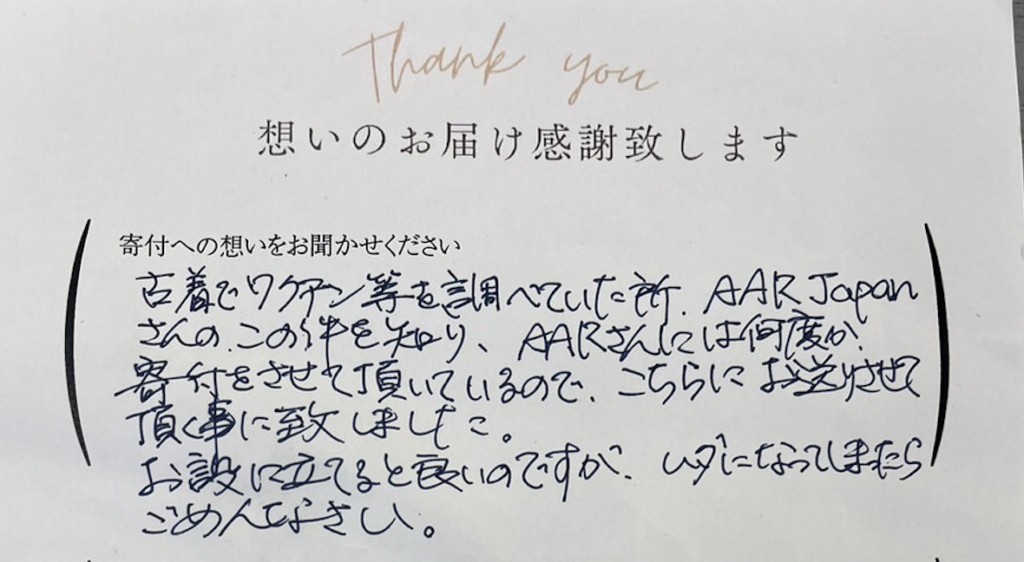 Thank you
想いのお届け感謝致します
寄付への想いをお聞かせください
古着でワクチン等を調べていた所、AAR Japan
さんの、この件を知り、AARさんには何度か、
寄付をさせて頂いているので、こちらにお送りさせて
頂く事に致しました。
お設に立てると良いのですが、ムダになってしまたら
ごめんなさい。